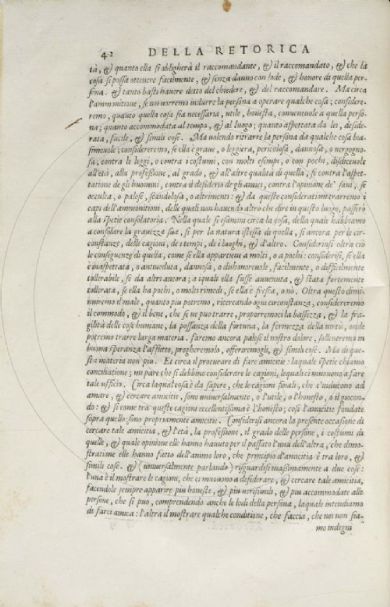 42 DELLA RETORICA
tà, & quanto ella si obligherà il raccomandante, & il raccomandato, & che la
cosa si possa ottenere facilmente, & senza danno con lode, & honore di quella per-
sona. & tanto basti havere detto del chiedere, & del raccomandare. Ma circa
l'ammonitione, se vorremo indurre la persona a operare qualche cosa; considere-
remo, quanto quella cosa sia necessaria, utile, honesta, convenevole a quella perso-
na; quanto accommodata al tempo, & al luogo; quanto aspettata da lei, deside-
rata, facile, & simili cose. Ma volendo ritrarre la persona da qualche cosa bia-
simevole; considereremo, se ella è grave, o leggiera, pericolosa, dannosa, o vergogno-
sa, contro le leggi, o contro i costumi, con molti esempi, o con pochi, disdicevole
all'età, alla professione, al grado, & all'altre qualità di quella, se contro l'aspet-
tatione de gli huomini, contro il desiderio degli amici, contra l'opinione de' savi, se
occulta, o palese, scandalosa, o altrimenti: & da queste considerationi trarremo i
capi dell'ammonitioni, delle quali non havendo altro che dire in questo luogo, passerò
alla spetie consolatoria. Nella quale si esamina circa la cosa, della quale habbiamo
a consolare la gravezza sua, sì per la natura istessa di quella, sì ancora per le cir-
constanze, delle cagioni, de' tempi, de' luoghi, & d'altro. Considerinsi oltra ciò
le conseguenze di quella, come se ella appartiene a molti, o a pochi: considerisi, se ella
è inaspettata, o antiveduta, dannosa, o dishonorevole, facilmente, o difficilmente
tollerabile, se da altri ancora; i quali ella fusse avvenuta, & stata fortemente
tollerata, se ella ha pochi, o molti rimedi, se ella è presta, o nò. Oltra questo dimi-
nuiremo il male, quanto più potremo, ricercando ogni circonstanza, considereremo
il commodo, & il bene, che se ne può trarre, proporremo la bassezza, & la fra-
gilità delle cose humane, la possanza della fortuna, la fermezza della virtù, onde
potremo trarre larga materia. Faremo ancora palese il nostro dolore, solleveremo in
buona speranza l'afflitto, pregheremolo, offeriremogli, & simili cose. Ma di que-
sta materia non più. Et circa il procurare di fare amicitie; laquale spetie chiamo
conciliatione; mi pare che si debbino considerare le cagioni, lequali ci muovono a fare
tale ufficio. Circa laqual cosa è da sapere, che le cagioni finali, che c'inducono ad
amare, & cercare amicitie, sono universalmente, o l'utile, o l'honesto, o il giocon-
do: & sì come trà queste cagioni eccellentissima è l'honesto; così l'amicitie fondate
sopra quello sono propriamente amicitie. Considerisi ancora la presente occasione di
cercare tale amicitia, & l'età, la professione, il grado delle persone, i costumi di
quelle, & quale opinione elle hanno havuto per il passato l'una dell'altra, che dimo-
stratione elle hanno fatto dell'animo loro, che principio d'amicitia è tra loro, &
simili cose. & (universalmente parlando) risguardisi massimamente a due cose:
l'una è il mostrare le cagioni, che ci muovono a desiderare, & cercare tale amicitia,
facendole sempre apparire più honeste, & più verisimili, & più accommodate alle
persone, che si può, comprendendo anche le lodi della persona, laquale intendiamo
di farci amica: l'altra il mostrare qualche conditione, che faccia, che noi non sia-
mo indegni